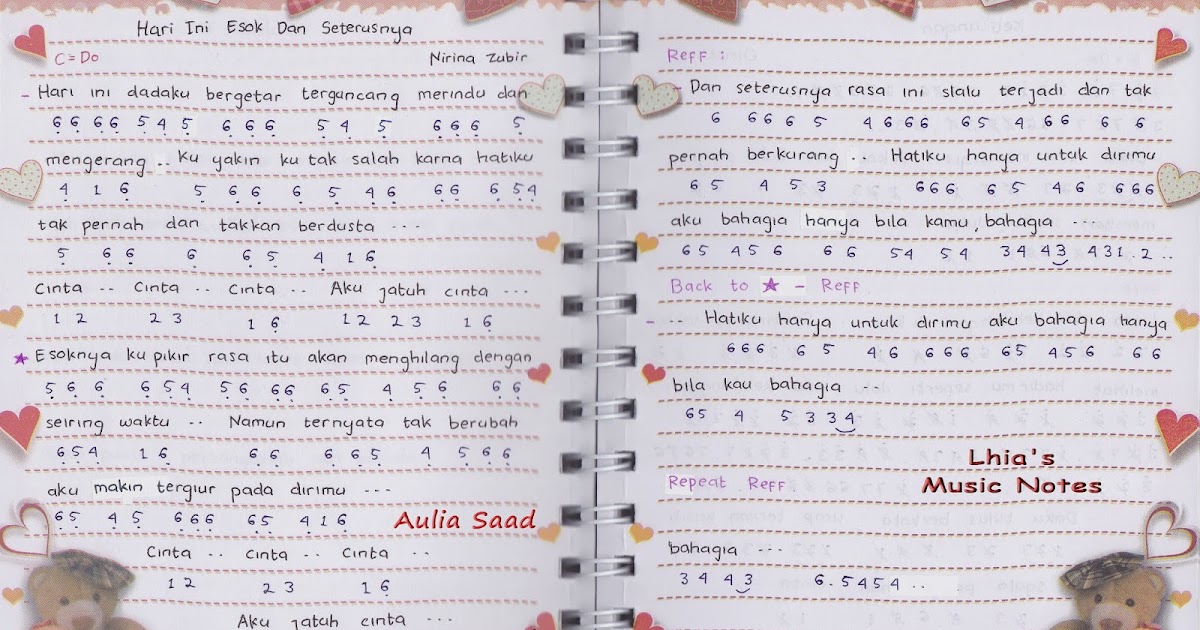 Hari Ini Esok Dan Seterusnya
C = Do
Nirina Zubir
- Hari ini dadaku bergetar terguncang merindu dan
6 6 6 6 5 4 5 6 6 6 5 4 5 6 6 6 5
mengerang .. Ku yakin ku tak salah karna hatiku
4 1 6 5 6 6 6 5 4 6 6 6 6 5 4
tak pernah dan takkan berdusta ...
5 6 6 6 6 5 4 1 6
Cinta .. Cinta .. Cinta .. Aku jatuh cinta ...
1 2 2 3 1 6 1 2 2 3 1 6
★ Esoknya ku pikir rasa itu akan menghilang dengan
5 6 6 6 5 4 5 6 6 6 6 5 4 5 6 6 6
seiring waktu .. Namun ternyata tak berubah
6 5 4 1 6 6 6 6 6 5 4 5 6 6
aku makin tergiur pada dirimu ...
6 5 4 5 6 6 6 6 5 4 1 6
Aulia Saad
Cinta .. Cinta .. Cinta ..
1 2 2 3 1 6
Aku jatuh cinta ...
Reff :
- Dan seterusnya rasa ini slalu terjadi dan tak
6 6 6 6 5 4 6 6 6 6 5 4 6 6 6 6
pernah berkurang .. Hatiku hanya untuk dirimu
6 5 4 5 3 6 6 6 6 5 4 6 6 6 6
aku bahagia hanya bila kamu, bahagia ...
6 5 4 5 6 6 6 5 4 5 4 3 4 4 3 4 3 1 . 2 ..
Back to ★ - Reff
- .. Hatiku hanya untuk dirimu aku bahagia hanya
6 6 6 6 5 4 6 6 6 6 6 5 4 5 6 6 6
bila kau bahagia ..
6 5 4 5 3 3 4
Lhia's
Music Notes
Repeat Reff
bahagia ...
3 4 4 3 6 . 5 4 5 4 ..